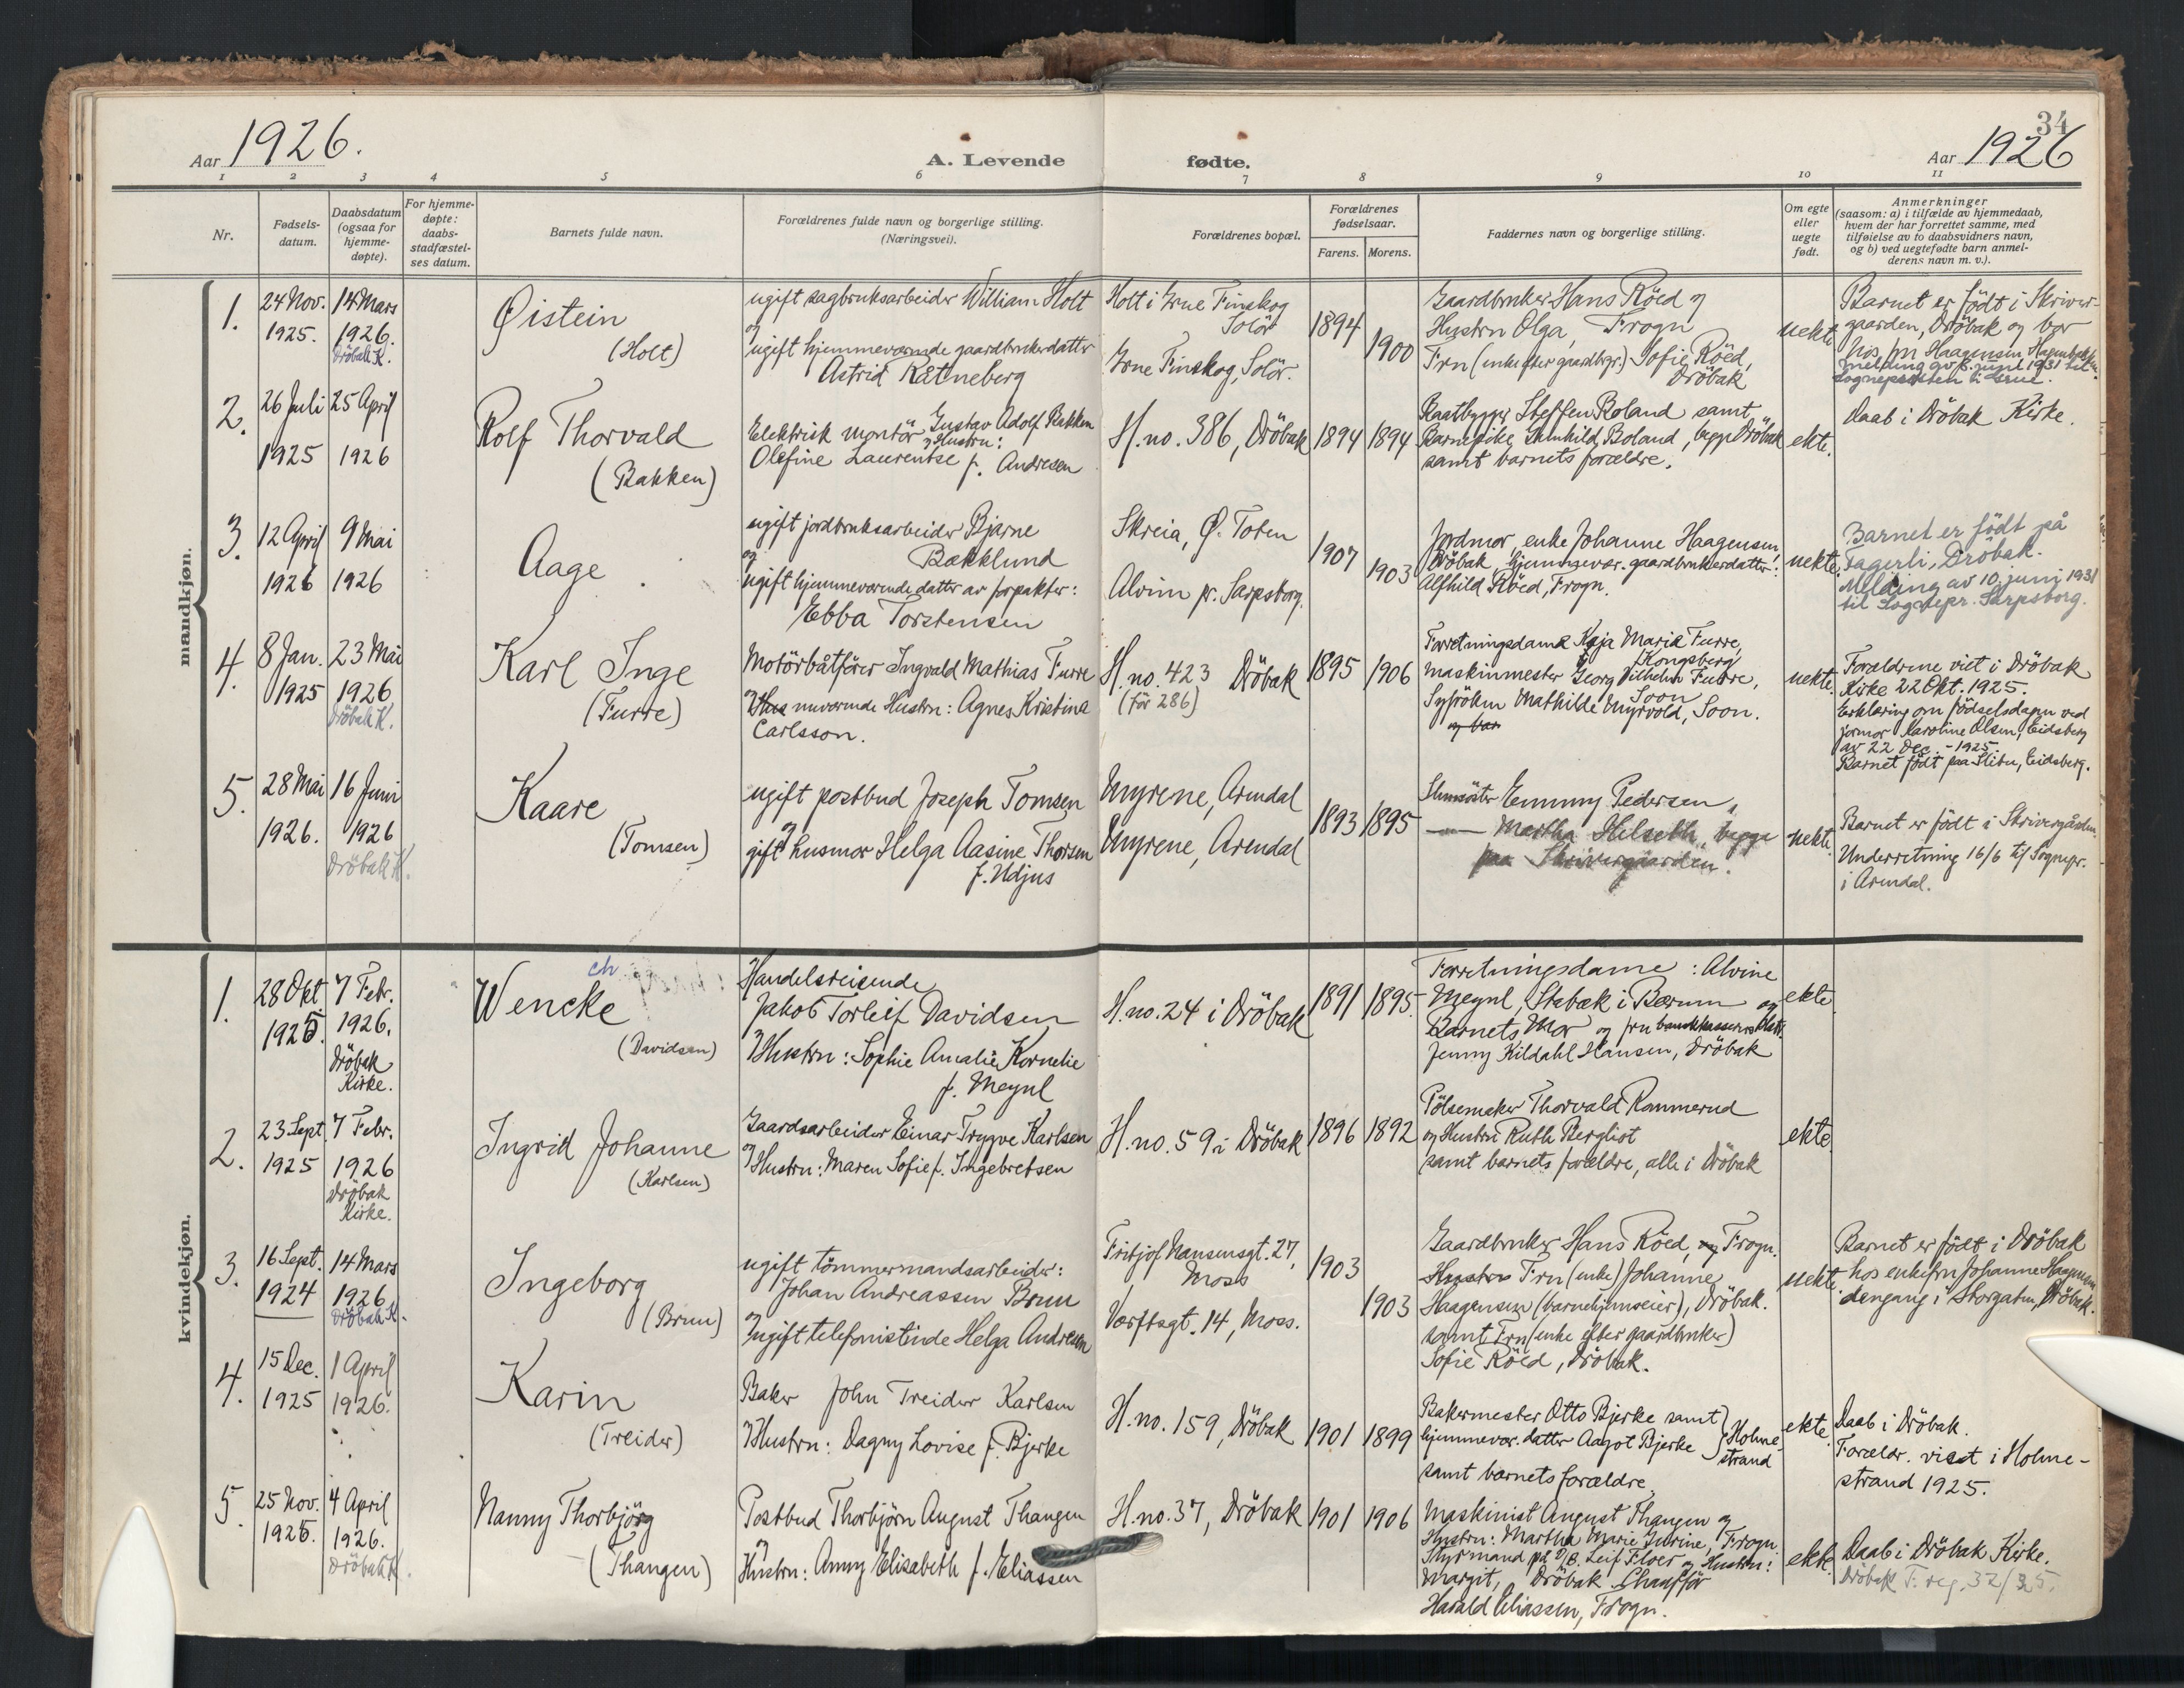 34
Aar 1926.
A. Levende
fødte.
Aar 1926
1 2 3 4 5 6 7 8 9 10 11
Nr.
Fødsels-
datum.
Daabsdatum
(ogsaa for
hjemme-
døpte).
For hjemme-
døpte:
daabs-
stadfæstel-
ses datum.
Barnets fulde navn.
Forældrenes fulde navn og borgerlige stilling.
(Næringsvei).
Forældrenes bopæl.
Forældrenes
fødselsaar.
Farens. Morens.
Faddernes navn og borgerlige stilling.
Om egte
eller
uegte
født.
Anmerkninger
(saasom: a) i tilfælde av hjemmedaab,
hvem der har forrettet samme, med
tilføielse av to daabsvidners navn,
og b) ved uegtefødte barn anmel-
derens navn m. v.).
mandkjøn.
1.
24 Nov.
1925.
14 Mars
1926.
Dröbak K.
Øistein
(Holt)
ugift sagbruksarbeider William Holt
og
ugift hjemmeværende gaardbrukerdatter
Astrid Kätneberg
Holt i Grue Finskog
Solör
Grue Finskog, Solör.
1894
1900
Gaardbruker Hans Röed og
Hustru Olga, Frogn
Fru (enke efter gaardbgr.) Sofie Röed,
Dröbak
uekte
Barnet er födt i Skriver-
gaarden, Dröbak og bor
hos fru Haagensen,
melding av 8. juni 1931 til
Sognepresten i Grue.
2.
26 Juli
1925
25 April
1926
Rolf Thorvald
(Bakken)
Elektrisk montör Gustav Adolf Bakken
og Hustru:
Olefine Laurentse f. Andresen
H. no. 386, Dröbak
1894
1894
Baatbygger Steffen Boland samt
Barnepike Boland, begge Dröbak
samt barnets forældre.
ekte.
Daab i Dröbak Kirke.
3.
12 April
1926
9 Mai
1926
Aage
ugift jordbruksarbeider Bjarne
Bækklund
og
ugift hjemmeværende datter av forpakter:
Ebba Torstensen
Skreia, Ø. Toten
Alvim pr. Sarpsborg.
1907
1903
Jordmor, enke Johanne Haagensen,
Dröbak, hjemmevær. gaardbrukerdatter:
Alfhild Röed, Frogn.
uekte.
Barnet er födt på
Fagerli, Dröbak.
Melding av 10. juni 1931
til Sognepr. Sarpsborg.
4.
8 Jan.
1925
23 Mai
1926
Dröbak K.
Karl Inge
(Furre)
Motörbåtförer Ingvald Mathias Furre
og Hus nuværende Hustru: Agnes Kristina
Carlsson.
H. no. 423 Dröbak
(för 286)
1895
1906
Forretningsdame Kaja Marie Furre,
Kongsberg
maskinmester Georg Vilhelm Furre,
Soon
Syfröken Mathilde Myrvold, Soon.
og bar
uekte.
Forældrene viet i Dröbak
Kirke 22 Okt. 1925.
Erklæring om födselsdagen ved
jormor Karoline Olsen, Eidsberg
av 22 Dec. - 1925
Barnet födt paa Slitu, Eidsberg.
5.
28 Mai
1926.
16 Juni
1926
Dröbak K.
Kaare
(Tomsen)
ugift postbud Joseph Tomsen
og
gift husmor Helga Aasine Thorsen
f. Udjus
Myrene, Arendal
Myrene, Arendal
1893
1895
Slumsöster Emmy Pedersen,
— Martha Helseth, begge
paa Skrivergaarden.
uekte.
Barnet er födt i Skrivergården.
Underretning 16/6 til Sognepr.
i Arendal.
kvindekjøn.
1.
28 Okt
1925.
7 Febr.
1926.
Dröbak
Kirke.
ch
Wencke
(Davidsen)
Handelsreisende
Jakob Torleif Davidsen
og Hustru: Sophie Amalie Kornelie
f. Meynl
H. no. 24 i Dröbak
1891
1895.
Forretningsdame: Alvine
Meynl, Stabæk i Bærum og
Barnets Mor og fru bankkasserer
Jenny Kildahl Hansen, Dröbak
ekte
2.
23 Sept
1925
7 Febr.
1926
Dröbak
Kirke.
Ingrid Johanne
(Karlsen)
Gaardsarbeider Einar Trygve Karlsen
og
Hustru: Maren Sofie f. Ingebretsen
H. no. 59 i Dröbak
1896
1892
Pölsemaker Thorvald Rammerud
og Hustru Ruth Bergliot
samt barnets forældre, alle i Dröbak
ekte.
3.
16 Sept.
1924
14 Mars
1926
Dröbak K.
Ingeborg
(Brun)
ugift tömmermandsarbeider:
Johan Andreassen Brun
og
ugift telefonistinde Helga Andresen
Fritjof Nansensgt. 27,
Moss
Værftsgt. 14, Moss.
1903
1903
Gaardbruker Hans Röed, og Frogn.
Hustru Fru (enke) Johanne
Haagensen (barnehjemseier), Dröbak.
samt Fru (enke efter gaardbruker)
Sofie Röed, Dröbak.
uekte.
Barnet er födt i Dröbak
hos enkefru Johanne Haagensen
dengang i Storgaten, Dröbak.
4.
15 Dec.
1925
1 April
1926.
Karin
(Treider)
Baker John Treider Karlsen
og Hustru: Dagny Lovise f. Bjerke
H. no. 159, Dröbak
1901
1899
Bakermester Otto Bjerke samt
hjemmevær. datter Aagot Bjerke } Holme-
strand
samt barnets forældre
ekte.
Daab i Dröbak.
Forældr. viet i Holme-
strand 1925.
5.
25 Nov.
1925.
4 April
1926.
Dröbak K.
Nanny Thorbjörg
(Thangen)
Postbud Thorbjörn August Thangen
og
Hustru: Anny Elisabeth f. Eliassen
H. no. 37, Dröbak
1901
1906
Maskinist August Thangen og
Hustru: Martha Marie Gurine, Frogn.
Styrmand på D/S. Leif Floer og Hustru:
Margit, Dröbak. Chafför
Harald Eliassen, Frogn.
ekte.
Daab i Dröbak Kirke.
Dröbak F. reg. 32/25.